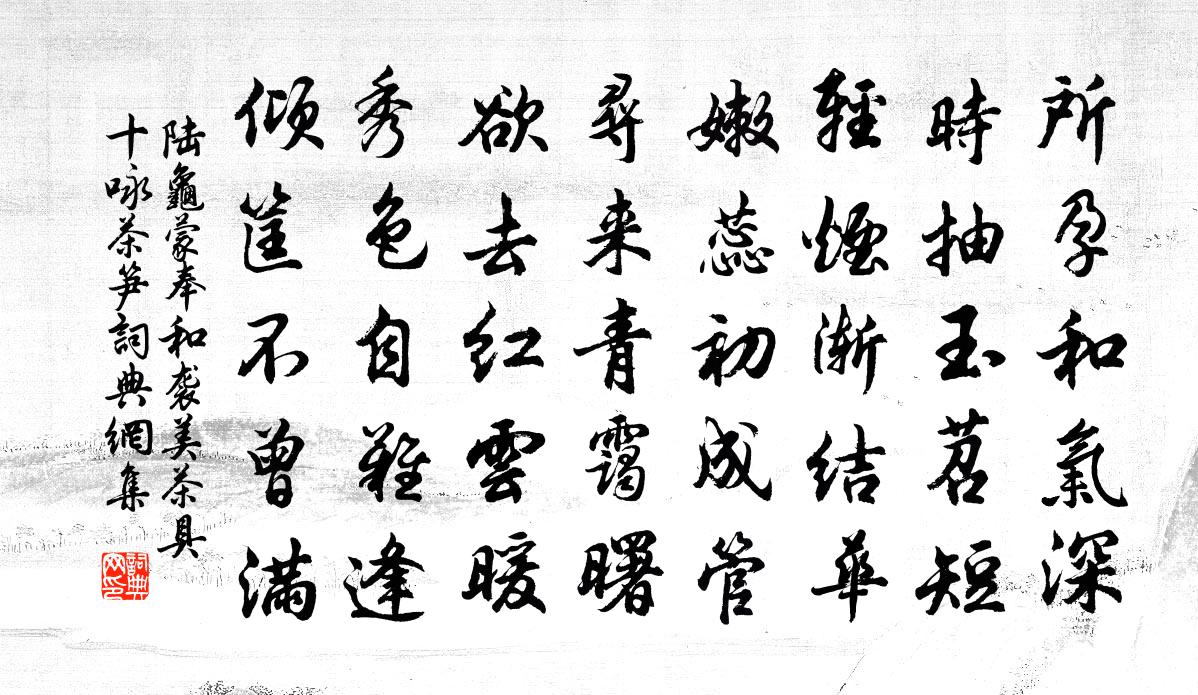 所孕和氣深
時抽玉苕短
輕煙漸結華
嫩蕊初成管
尋来青靄曙
欲去红雲暖
秀色自難逢
傾筐不曾滿
陆龜蒙奉和袭美茶具
十咏茶笋詞典網集
詞典网印